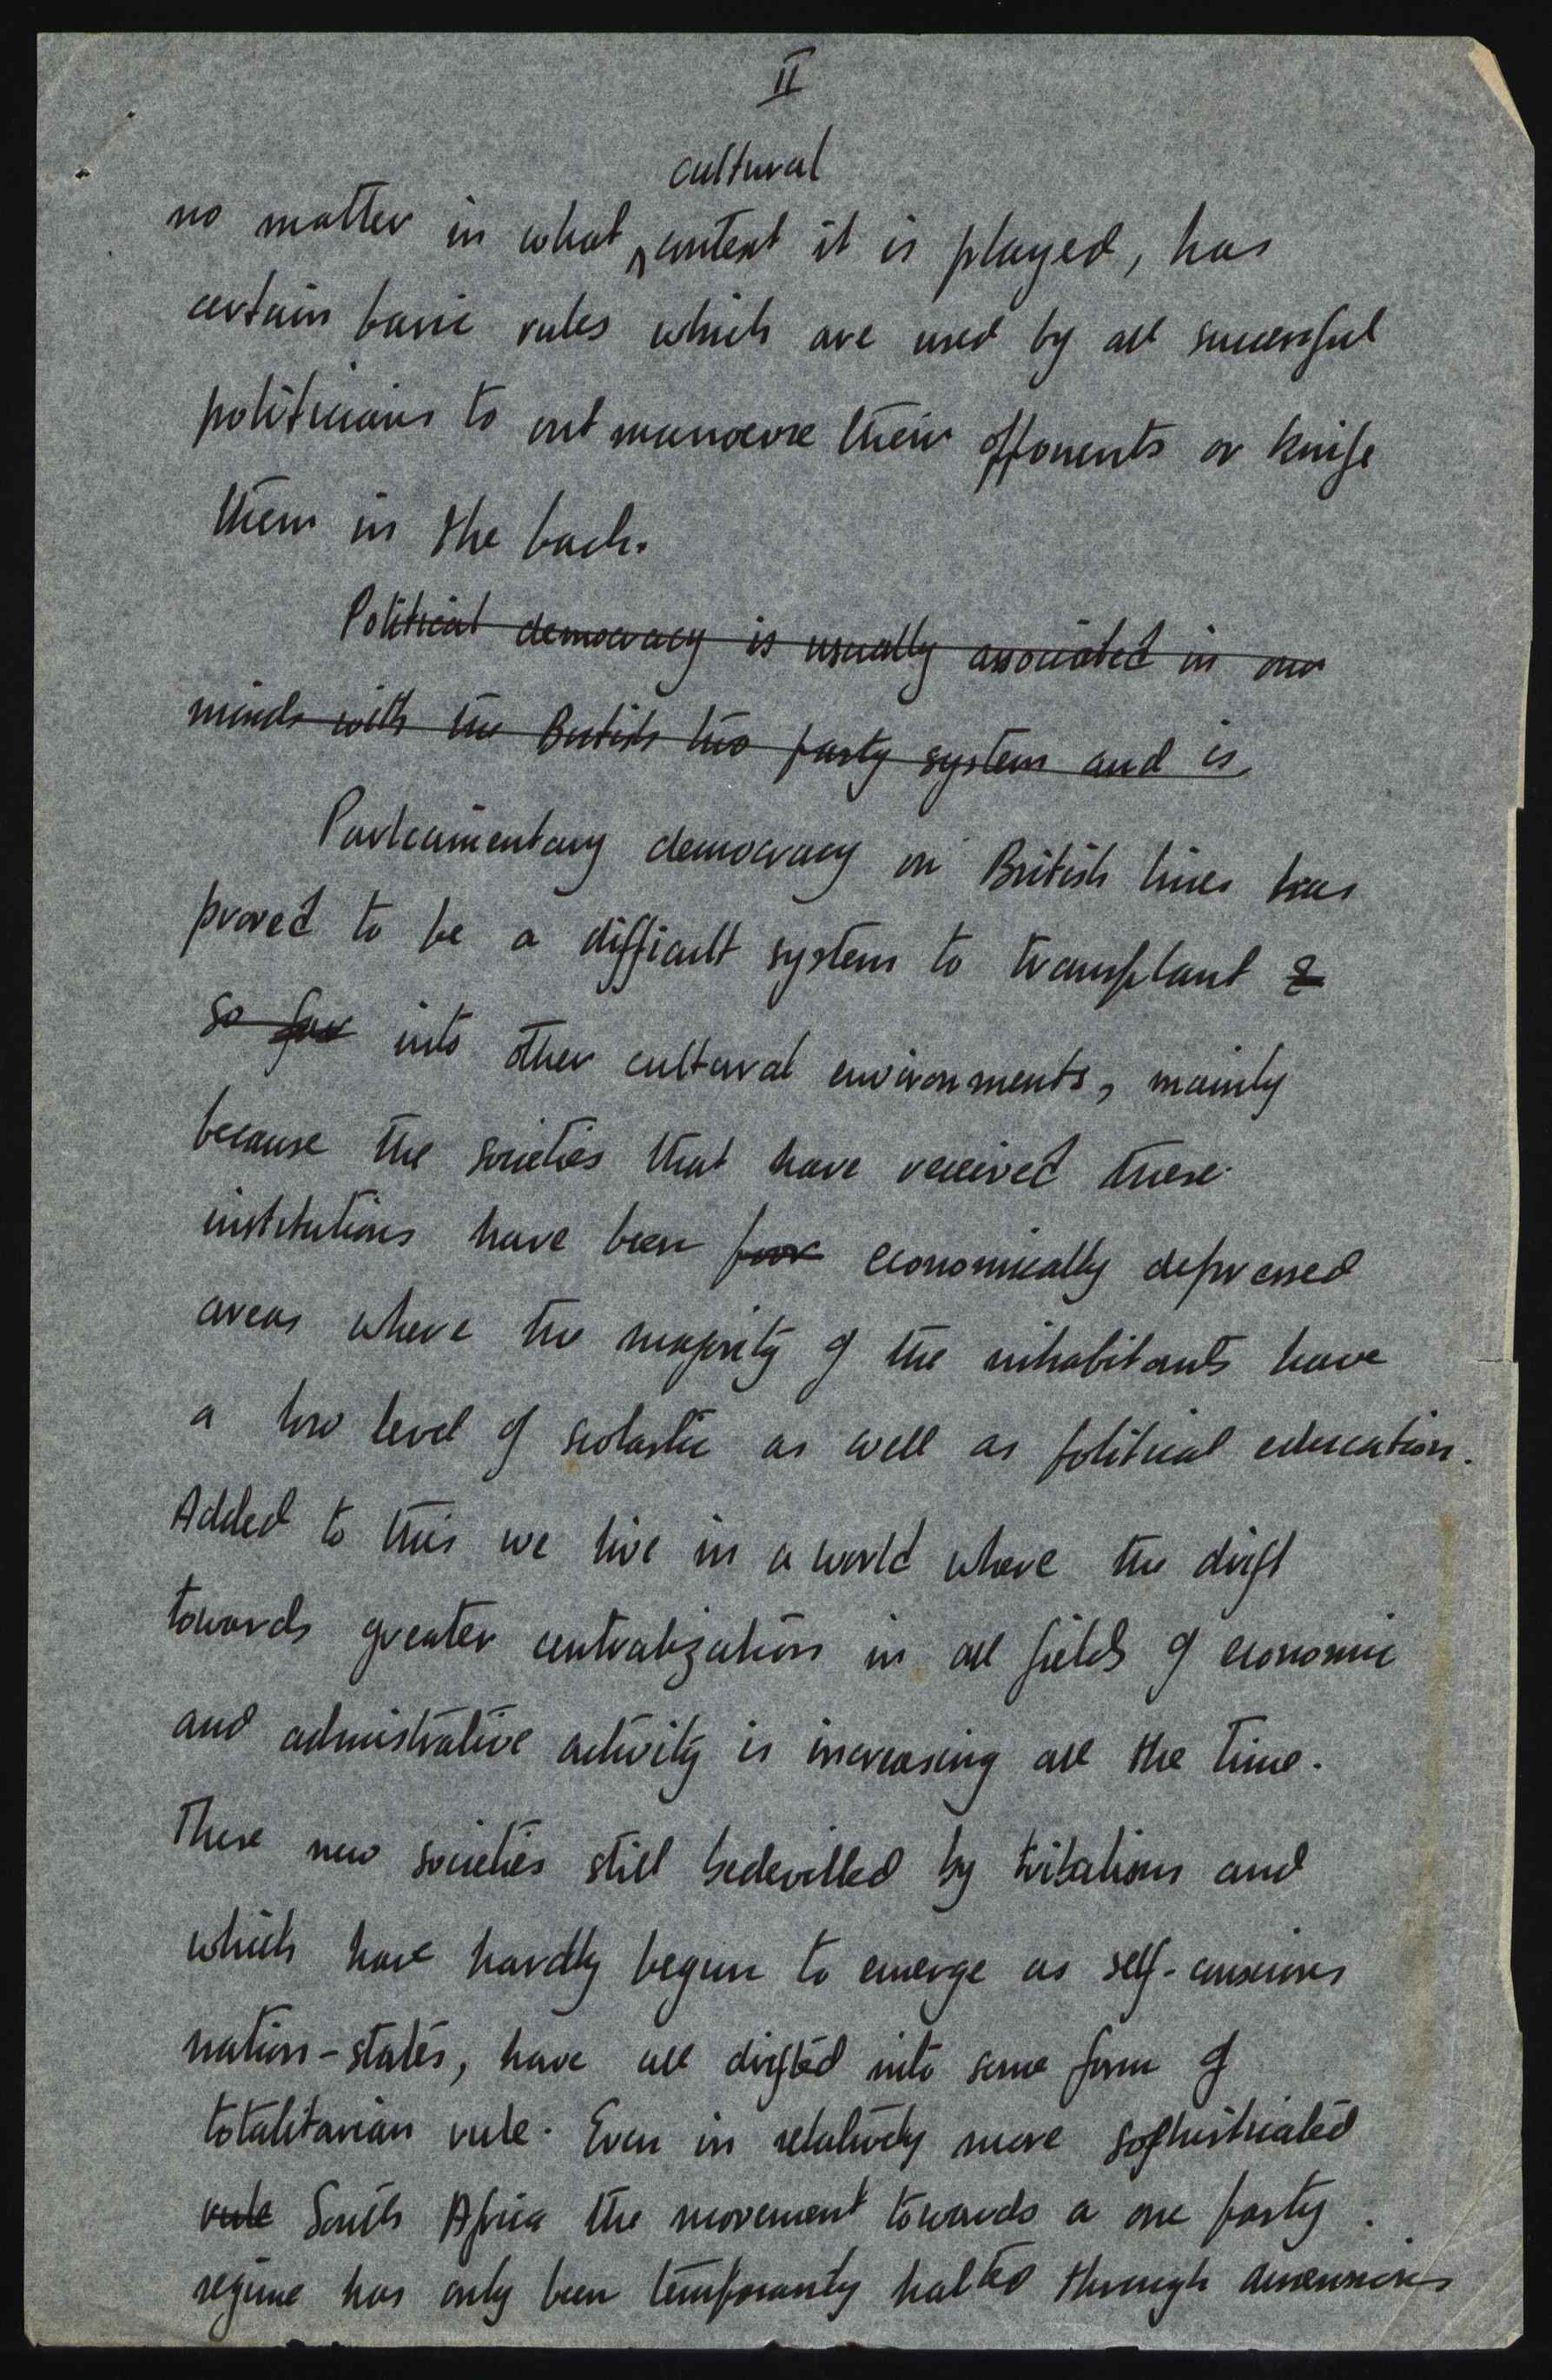 II
cultural
no matter in what context it is played, has
certain basic rules which are used by all successful
politicians to out manoevre their opponents or knife
them in the back.
Political democracy is usually associated in our
minds with the British two party system and is
Parliamentary democracy on British lines has
proved to be a difficult system to transplant &
so far into other cultural environments, mainly
because the societies that have received these
institutions have been poor economically depressed
areas where the majority of the inhabitants have
a low level of scolastic as well as political education.
Added to this we live in a world where the drift
towards greater centralization in all fields of economic
and admistrative activity is increasing all the time.
These new societies still bedevilled by tribalism and
which have hardly begun to emerge as self-conscious
nation-states, have all drifted into some form of
totalitarian rule. Even in relatively more sophisticated
rule South Africa the movement towards a one party
regime has only been temporarily halted through dissensions